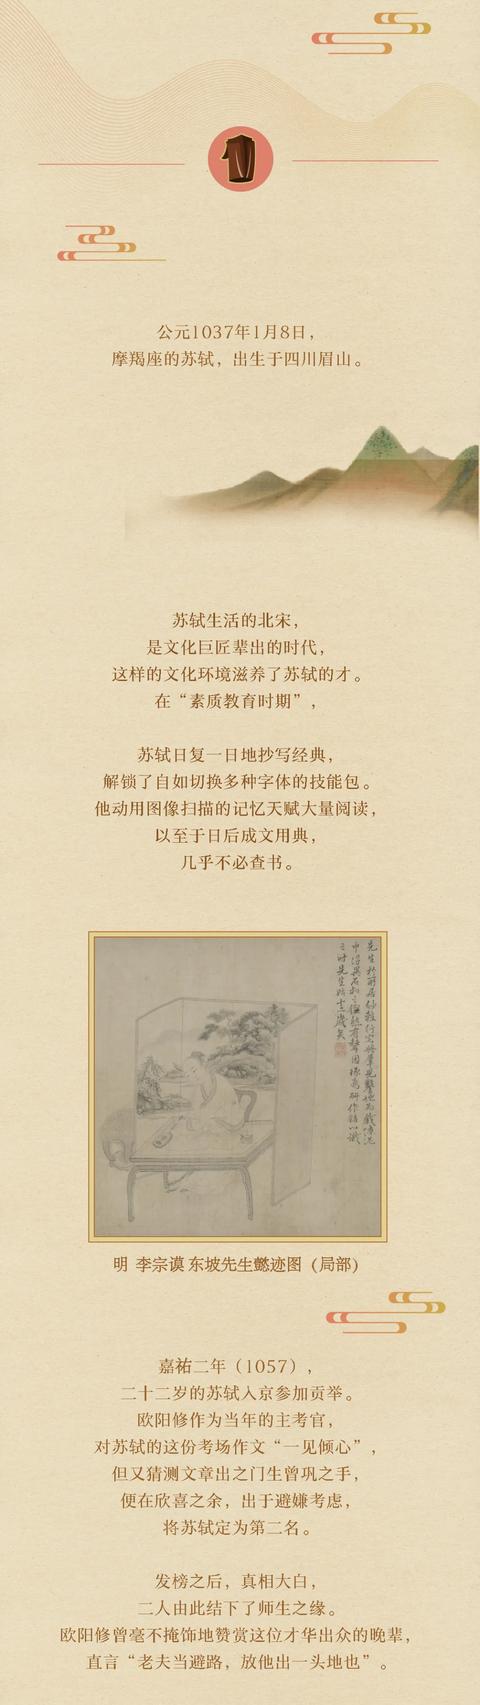 公元1037年1月8日，
摩羯座的苏轼，出生于四川眉山。
苏轼生活的北宋，
是文化巨匠辈出的时代，
这样的文化环境滋养了苏轼的才。
在“素质教育时期”，
苏轼日复一日地抄写经典，
解锁了自如切换多种字体的技能包。
他动用图像扫描的记忆天赋大量阅读，
以至于日后成文用典，
几乎不必查书。
明 李宗谟 东坡先生懿迹图（局部）
嘉祐二年（1057），
二十二岁的苏轼入京参加贡举。
欧阳修作为当年的主考官，
对苏轼的这份考场作文“一见倾心”，
但又猜测文章出之门生曾巩之手，
便在欣喜之余，出于避嫌考虑，
将苏轼定为第二名。
发榜之后，真相大白，
二人由此结下了师生之缘。
欧阳修曾毫不掩饰地赞赏这位才华出众的晚辈，
直言“老夫当避路，放他出一头地也”。